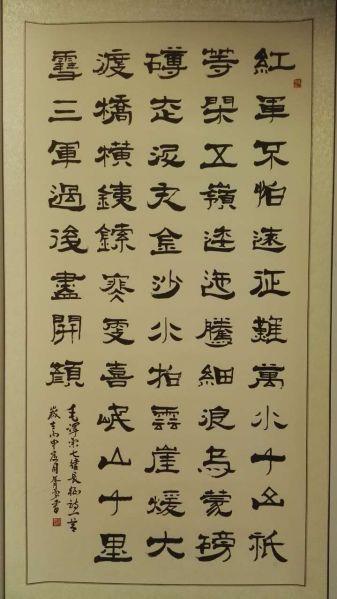 紅軍不怕遠征難萬水千山祇
等閑五嶺逶迤騰細浪烏蒙磅
礴走泥丸金沙水拍雲崖煖大
渡橋橫銕鎍寒更喜岷山千里
雪三軍過後盡開顏
毛澤東七律長征詩一首
歲在丙申月書